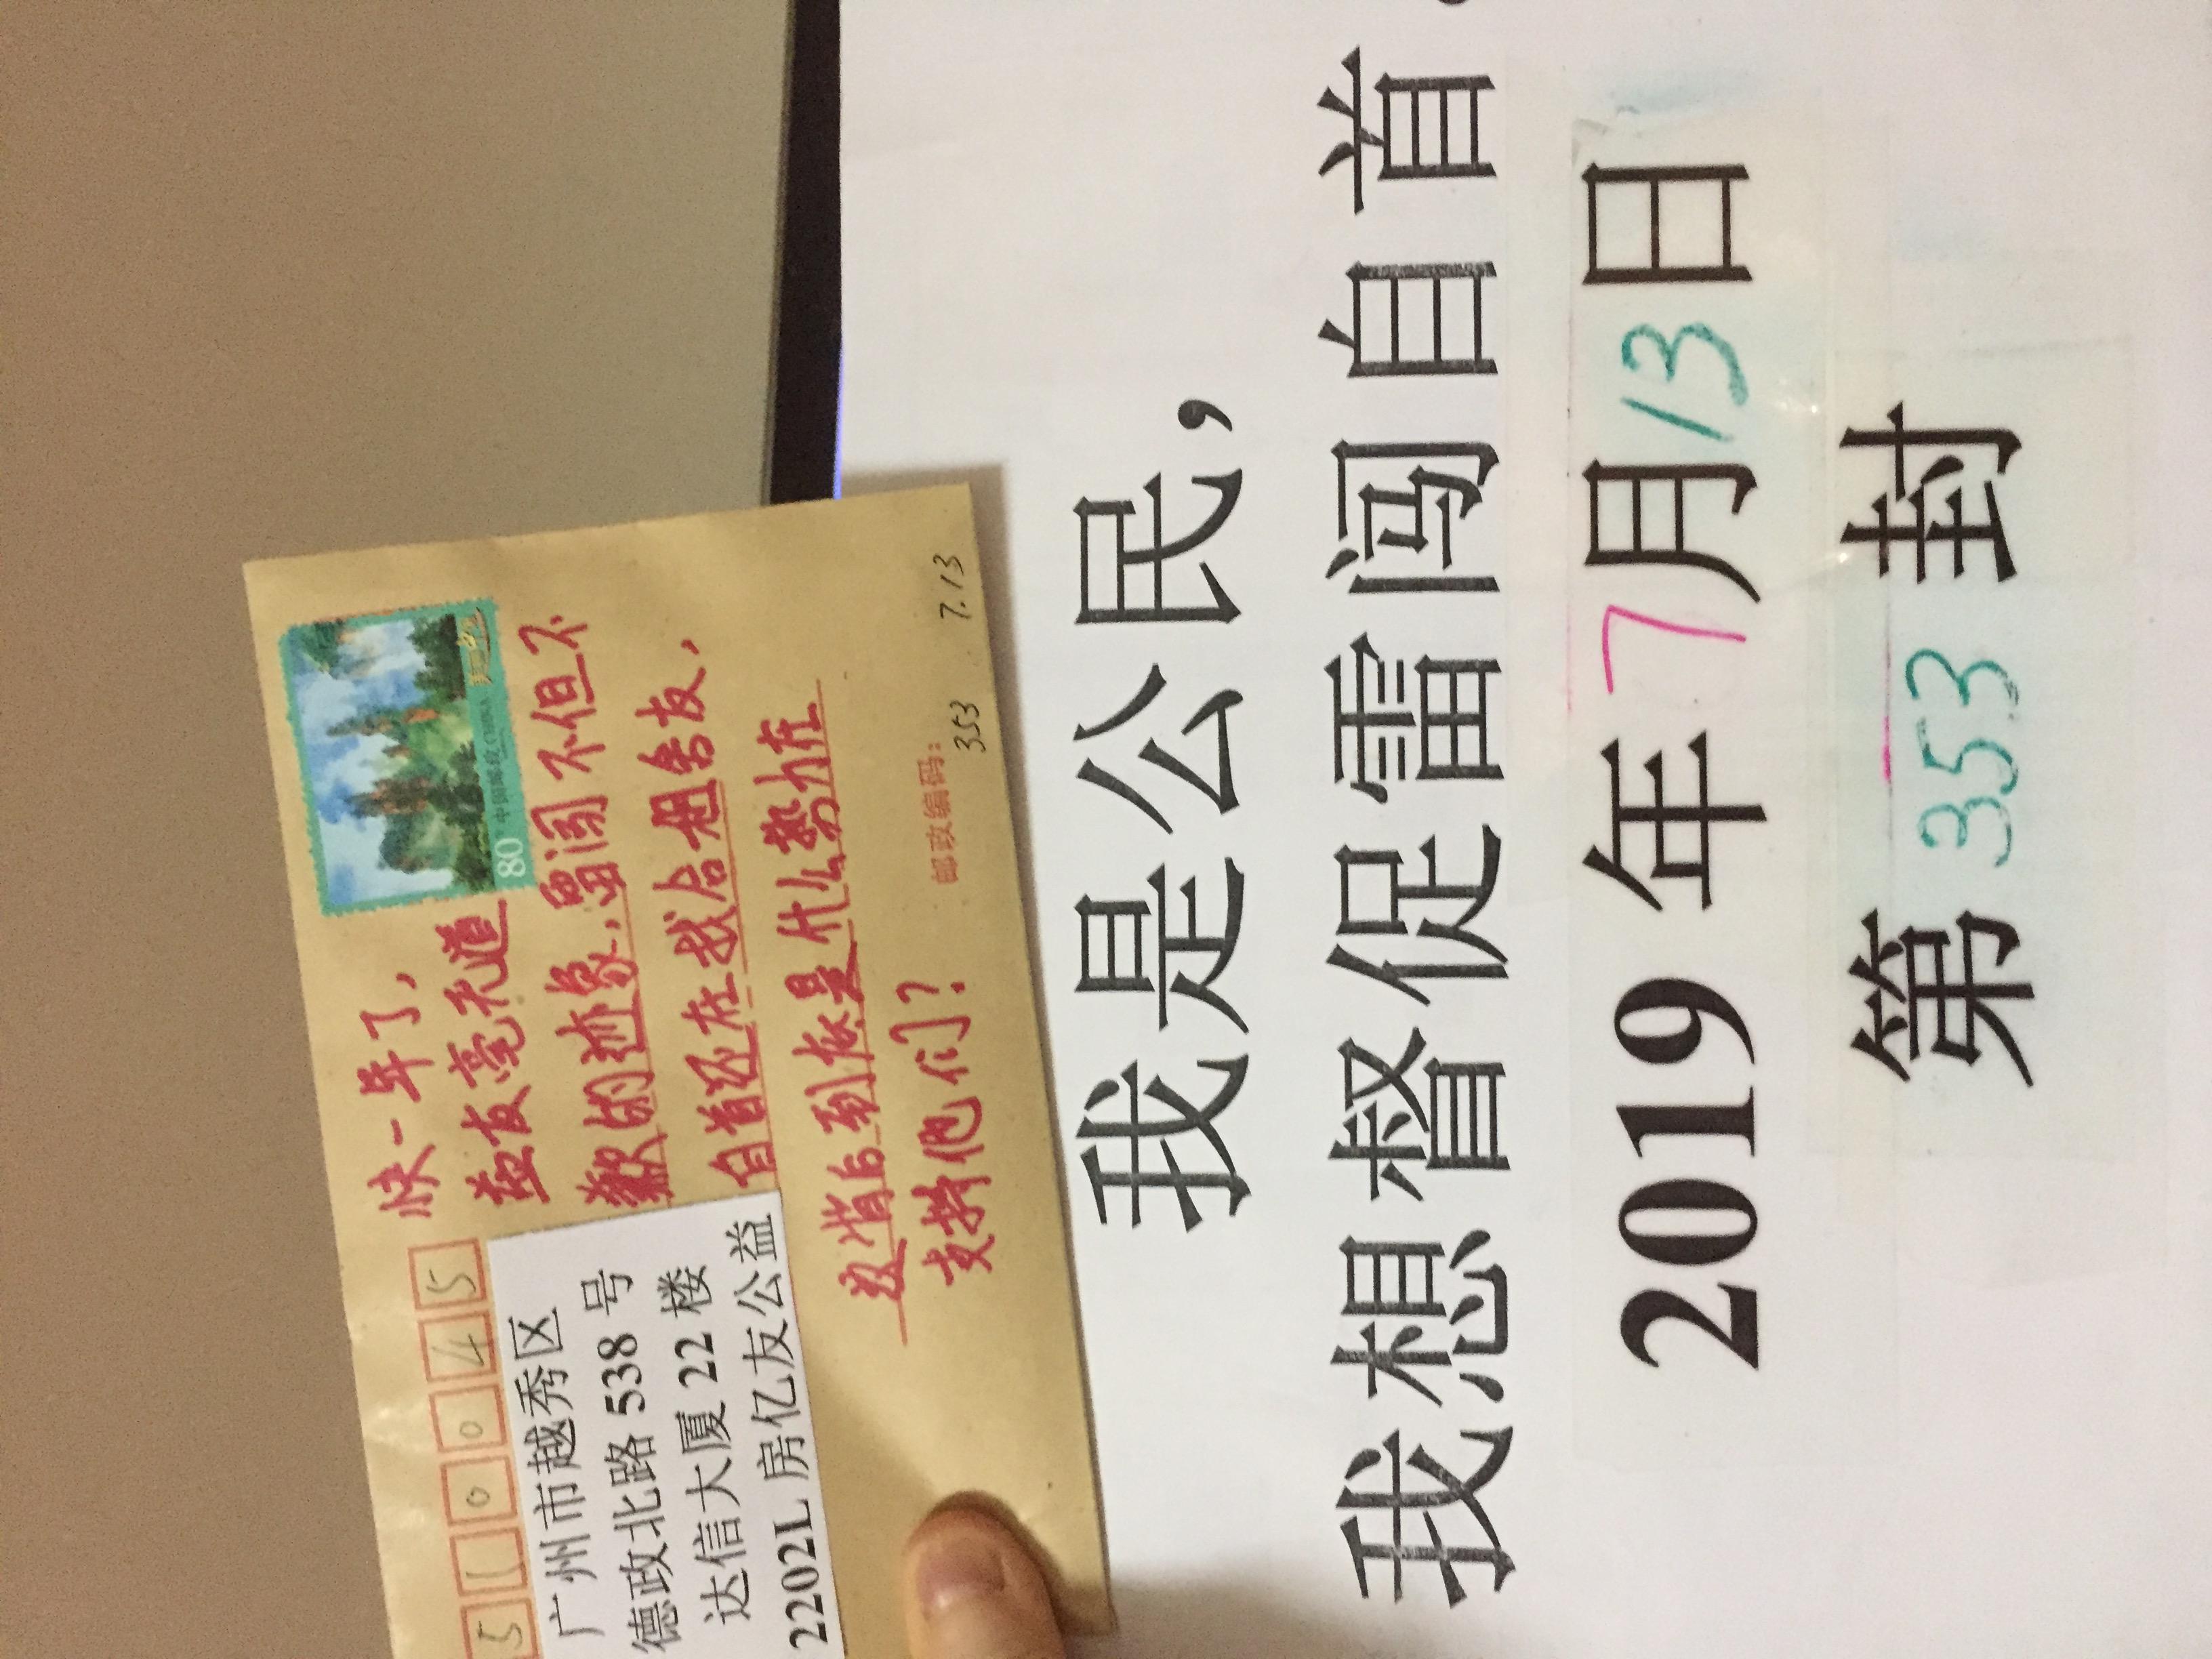 510045
广州市越秀区
德政北路 538 号
达信大厦 22 楼
2202L 房亿友公益
快一年了，
益友毫无道
歉的迹象，雷闯不但不
自首还在找合租舍友，
这背后到底是什么势力在
支持他们？
80 中国邮政 CHINA
美丽中国
邮政编码：
353 7.13
我是公民，
我想督促雷闯自首。
2019 年 7月13日
第 353 封